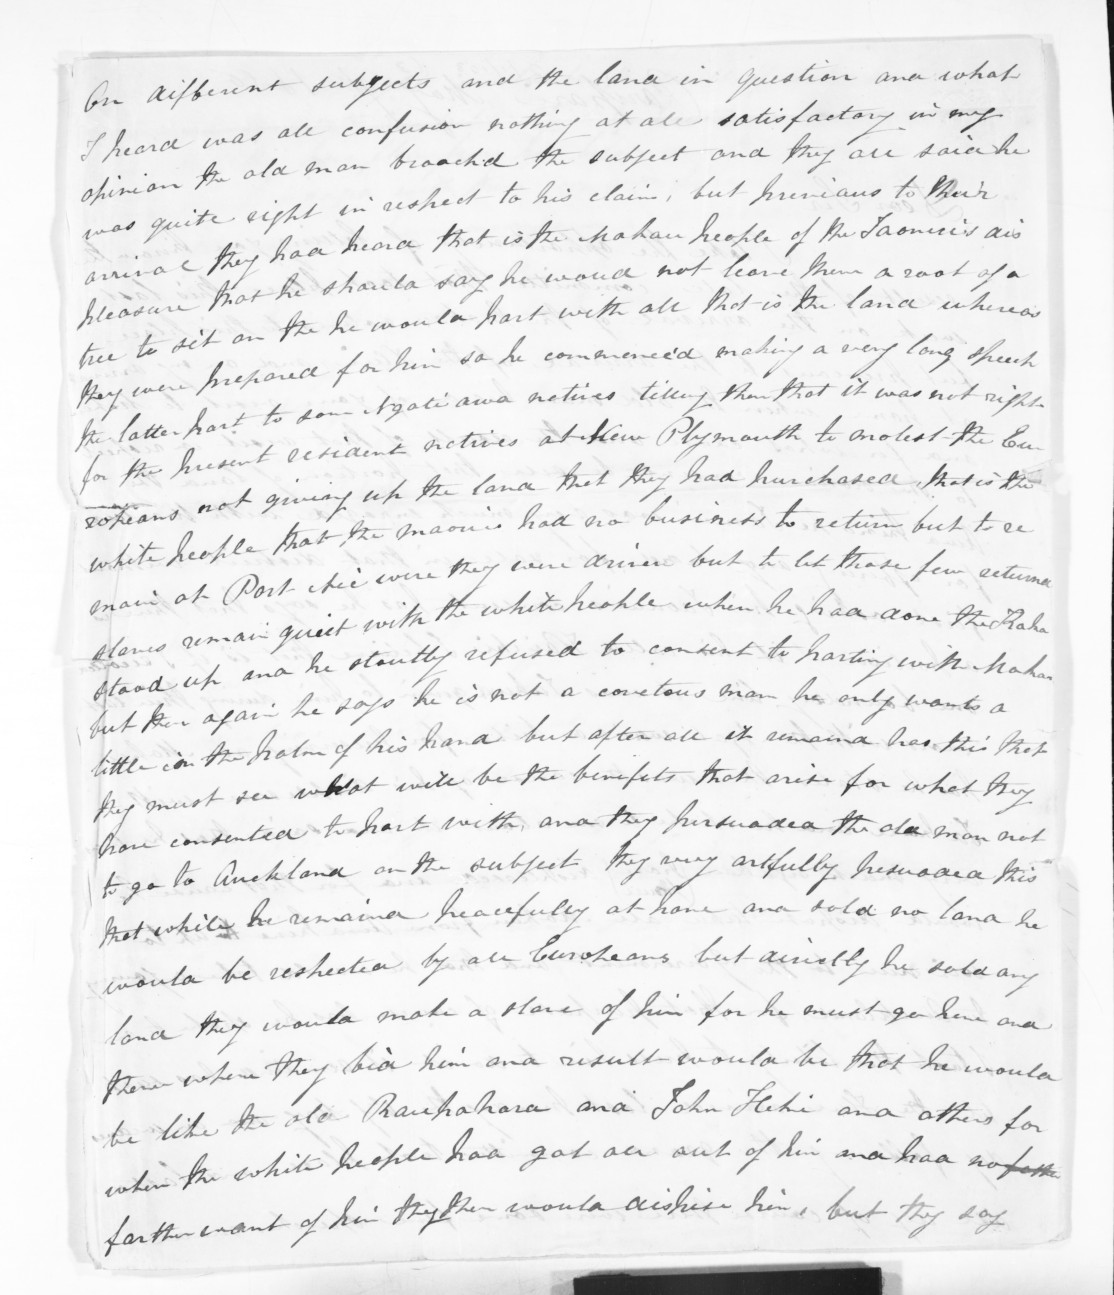 On different subjects and the land in question and what
I heard was all confusion nothing at all satisfactory in my
opinion the old man broachd the subject and they all said he
was quite right in respect to his claim, but previous to their
arrival they had heard that is the Mokau people of the Taonui's dis
pleasure that he should say he would not leave them a root of a
tree to sit on the he would part with all that is the land whereas
they were prepared for him so he commenced making a very long speech
the latter part to some Ngatiawa natives telling them that it was not right
for the present resident natives at New Plymouth to molest the Eu
ropeans not giving up the land that they had purchased, that is the
white people that the maoris had no business to return but to re
main at Port Nic were they were driven but to let those few returnd
slaves remain quiet with the white people when he had done the Kaka
stood up and he stoutly refused to consent to parting with Mokau
but then again he says he is not a covetous man he only wants a
little in the palm of his hand but after all it remaind has this that
they must see what will be the benifits that arise for what they
have consented to part with, and they persuaded the old man not
to go to Auckland on the subject they very artfully pesuaded this
that while he remaind peacefully at home and sold no land he
would be respected by all Europeans but directly he sold any
land they would make a slave of him for he must go here and
there where they bid him and result would be that he would
be like the old Rauparaha and John Heke and others for
when the white people had got all out of him and had no
farther want of him they then would dispise him, but they say